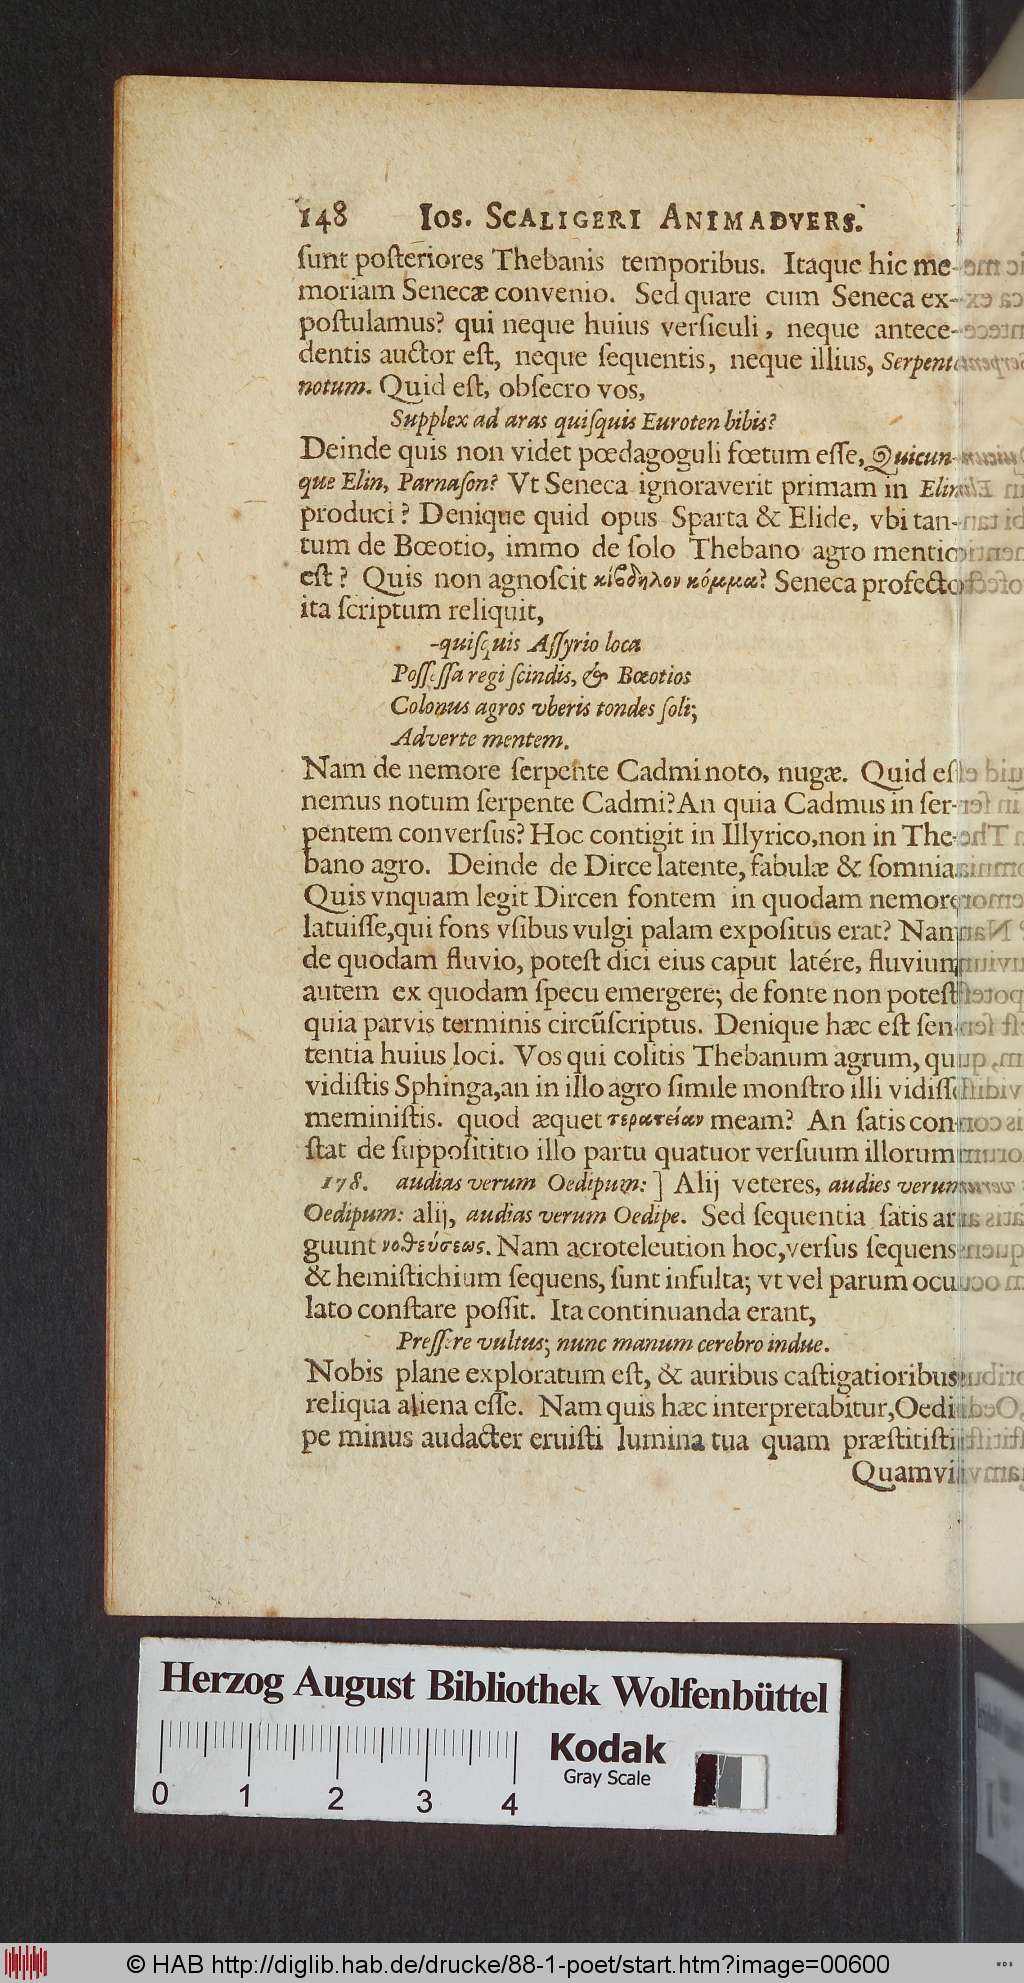 148 IOS. SCALIGERI ANIMADVERS.
sunt posteriores Thebanis temporibus. Itaque hic me-
moriam Senecæ convenio. Sed quare cum Seneca ex-
postulamus? qui neque huius versiculi, neque antece-
dentis auctor est, neque sequentis, neque illius, Serpent
notum. Quid est, obsecro vos,
Supplex ad aras quisquis Euroten bibis?
Deinde quis non videt pœdagoguli fœtum esse, Quicun-
que Elin, Parnason? Vt Seneca ignoraverit primam in Elin
produci? Denique quid opus Sparta & Elide, vbi tan-
tum de Bœotio, immo de solo Thebano agro mentio
est? Quis non agnoscit κίβδηλον κόμμα? Seneca profecto
ita scriptum reliquit,
-quisquis Assyrio loca
Possessa regi scindis, & Bœotios
Colonus agros vberis tondes soli;
Adverte mentem.
Nam de nemore serpente Cadmi noto, nugæ. Quid est
nemus notum serpente Cadmi? An quia Cadmus in ser-
pentem conversus? Hoc contigit in Illyrico, non in The-
bano agro. Deinde de Dirce latente, fabulæ & somnia.
Quis vnquam legit Dircen fontem in quodam nemore
latuisse, qui fons vsibus vulgi palam expositus erat? Nam
de quodam fluvio, potest dici eius caput latére, fluvium
autem ex quodam specu emergere; de fonte non potest
quia parvis terminis circũscriptus. Denique hæc est sen-
tentia huius loci. Vos qui colitis Thebanum agrum, qui
vidistis Sphinga, an in illo agro simile monstro illi vidisse
meministis. quod æquet τερατείαν meam? An satis con-
stat de supposititio illo partu quatuor versuum illorum
178. audias verum Oedipum: ] Alij veteres, audies verum
Oedipum: alij, audias verum Oedipe. Sed sequentia satis ar
guunt νοθεύσεως. Nam acroteleution hoc, versus sequens
& hemistichium sequens, sunt insulta; vt vel parum ocu
lato constare possit. Ita continuanda erant,
Pressere vultus; nunc manum cerebro indue.
Nobis plane exploratum est, & auribus castigatioribus
reliqua aliena esse. Nam quis hæc interpretabitur, Oedi
pe minus audacter eruisti lumina tua quam præstitisti
Quamvi
Herzog August Bibliothek Wolfenbüttel
0 1 2 3 4
Kodak
Gray Scale
© HAB http://diglib.hab.de/drucke/88-1-poet/start.htm?image=00600